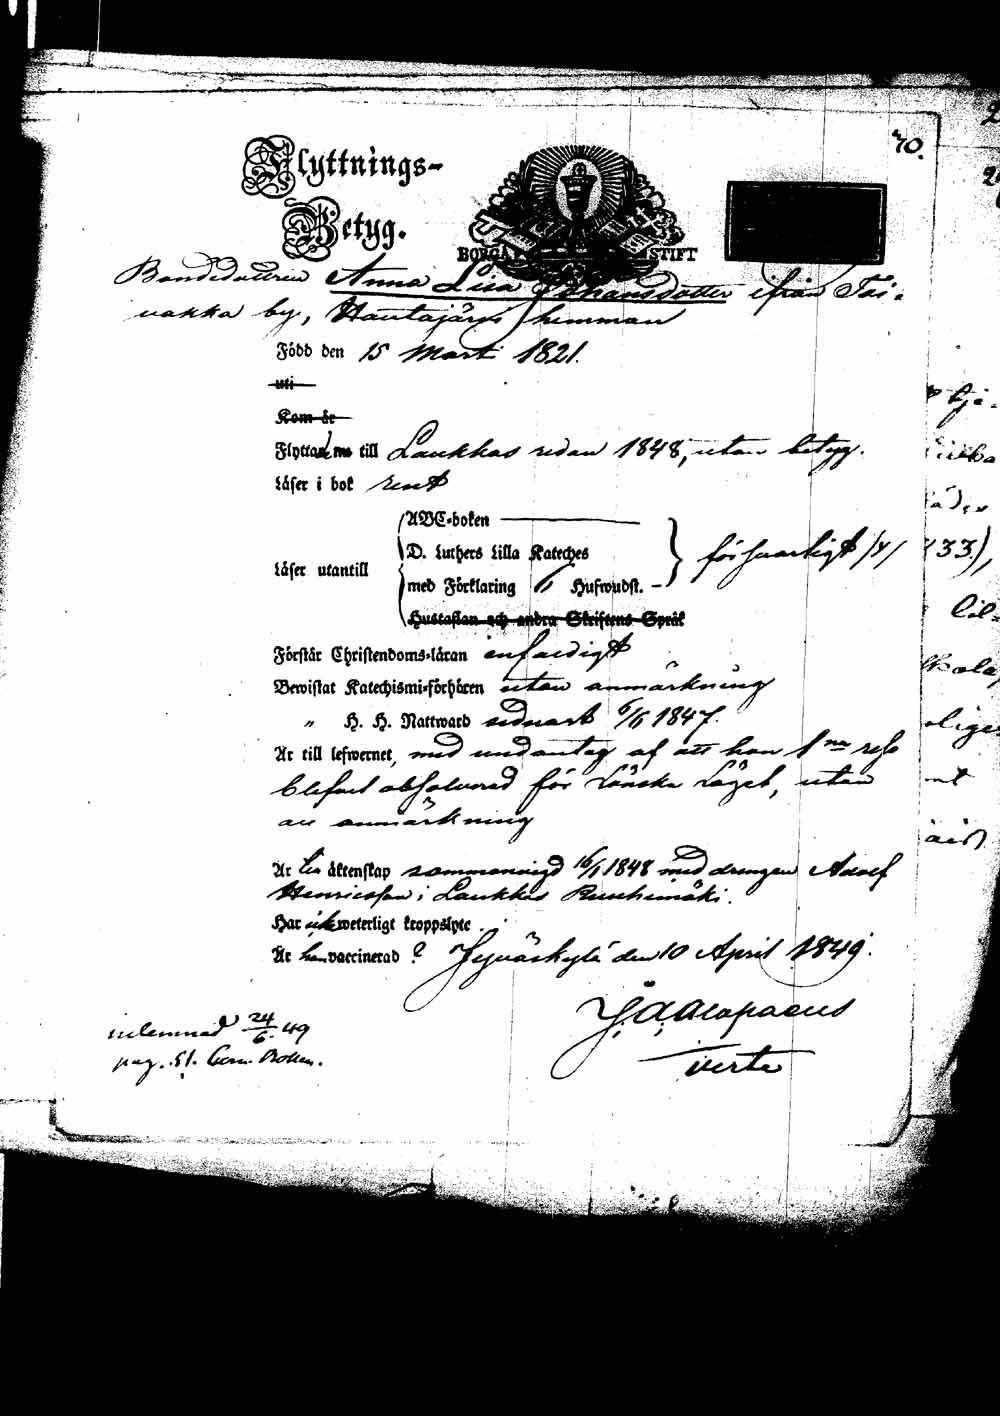 70.
Flyttnings-
Betyg.
BORGÅ STIFT
Bondedottren Anna Lisa Johansdotter ifrån Toi-
vakka by, Hautajärvi hemman
Född den 15 Mart. 1821.
uti
Kom år
Flyttade till Laukkas redan 1848, utan betyg.
Läser i bok rent
ABC-boken
D. Luthers Lilla Kateches
Läser utantill
försvarligt /4/
med Förklaring 6 Hufwudst.
Hustaflan och andra Skriftens Språk
Förstår Christendoms-läran enfaldigt
Bewistat Katechismi-förhören utan anmärkning
" H. H. Nattward sednast 6/6 1847.
Är till lefwernet, med undantag af att hon 1na resa
blifvit absolverad för Lönska Läget, utan
all anmärkning
Är till äktenskap sammanvigd 16/1 1848 med drengen Adolf
Henricsson i Laukkas Ruuhimäki.
Har icke weterligt kroppslyte.
Är hon vaccinerad ? Jyväskylä den 10 April 1849.
J. A. Alopaeus
verte
inlemnad 24/6 49
pag. 51. Com. Boken.